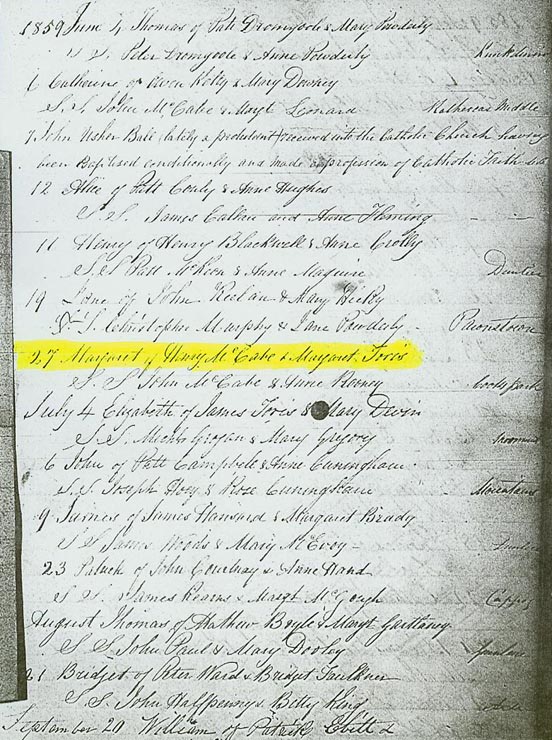 1859 June 4 Thomas of Patt Dromgoole & Mary Powderly
S. S. Peter Dromgoole & Anne Powderly
6 Catherine of Owen Kelly & Mary Downey
S. S. John McCabe & Margt Leonard
7 John Usher Ball (lately a protestant) received into the Catholic Church having
been Baptised conditionally and made a profession of Catholic Faith
12 Alice of Patt Conly & Anne Hughes
S. S. James Callan and Anne Fleming
11 Henry of Henry Blackwell & Anne Crolly
S. S. Patt McKeon & Anne Maguire
19 Jane of John Keelan & Mary Hicky
S. S. Christopher Murphy & Jane Powderly
27 Margaret of Henry McCabe & Margaret Toris
S. S. John McCabe & Anne
July 4 Elizabeth of James Toris & Mary Devin
S. S. Michl Grogan & Mary Gregory
6 John of Patt Campbell & Anne Cuningham
S. S. Joseph & Rose Cuningham
9 James of James & Margaret Brady
S. S. James Woods & Mary McEvoy
23 Patrick of John Courtnay & Anne Hand
S. S. James Kearns & Margt McGough
August Thomas of Mathew Boyle & Margt
S. S. John Paul & Mary Dooley
21 Bridget of Peter Ward & Bridget Faulkner
S. S. John Halfpenny & Betty King
September 20 William of Patrick